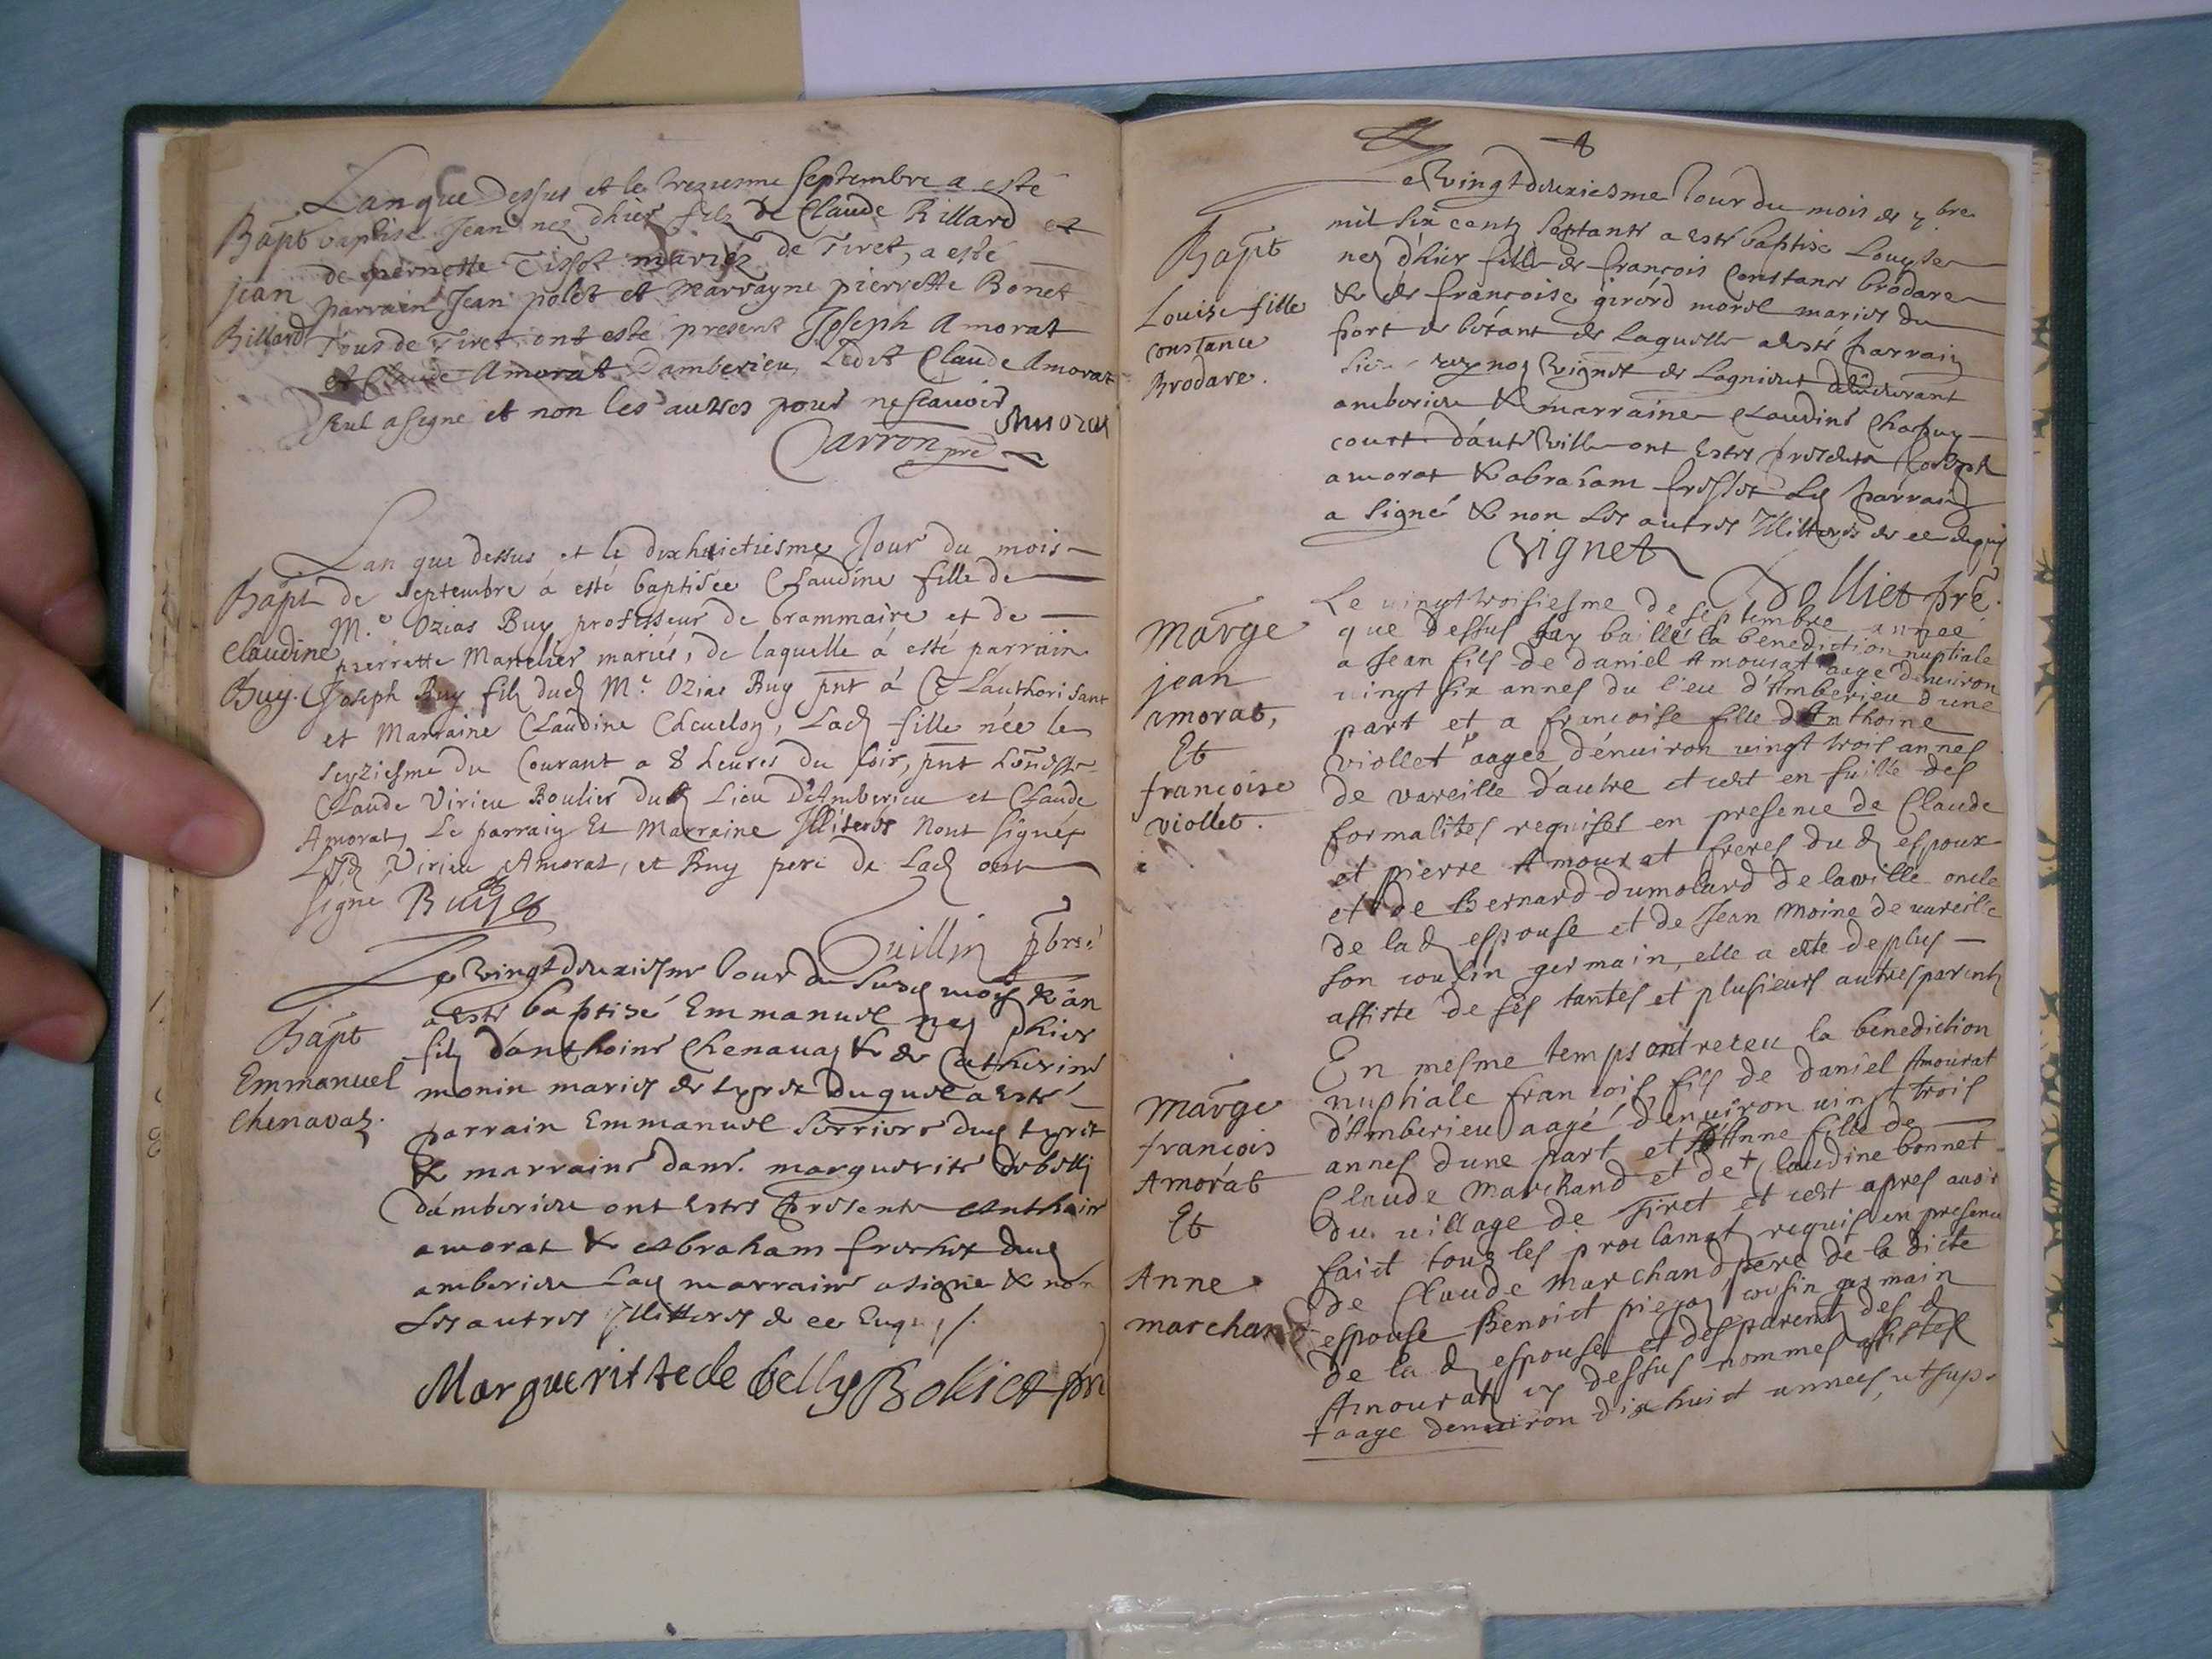 Lan que Dessus et le treziesme Septembre a esté
Bapt baptisé Jean nez dhier filz de Claude Billard et
de pernette Tissot mariéz de Tiret, a esté
jean parrain Jean polet et Marrayne pierrette Bonet
Billard Tous de Tiret, ont esté present Joseph Amorat
et Claude Amorat Damberieu, Ledit Claude Amorat
seul a signe et non les autres pour ne scauoir
Amorat
Carron pre
Lan que dessus et le dixhuictiesme Jour du mois
Bapt de Septembre a esté baptisée Claudine fille de
M.e Ozias Buy professeur de Grammaire et de
Claudine pierrette Mantelier mariés, de laquelle á esté parrain
Buy. Joseph Buy filz dud M.e Ozias Buy pnt á Ce Lauthorisant
et Marraine Claudine Lad fille née le
seyziesme du Courant a 8 heures du soir, pnt
Claude Virieu dud Lieu D'Amberieu et Claude
Amorat, Le parrain Et Marraine Illiterés Nont signés
Virieu Amorat, et Buy pere de Lad ont
signe Buy
Guillin pbre
Le Vingt deuxiesme Jour du susd mois & an
Bapt a esté baptisé Emmanuel nez dhier
filz danthoine Chenavaz & de Catherine
Emmanuel monin mariez de tyret duquel a esté
Chenavaz. parrain Emmanuel dud tyret
& marraine dame. marguerite debelly
damberieu ont estes presents Anthoine
amorat & Abraham frochot dud
amberieu Lad marraine a signé & non
Les autres Illitteres de ce Enquis /.
Margueritte de belly Bolliet pre
8
Le Vingt deuxiesme Jour du mois de 7.bre
mil six centz septante a esté baptisé Louyse
Bapt nez d'hier fille de françois Constance brodare
Louise fille & de françoise girérd morel mariez du
constance port de de Laquelle a esté parrain
Brodare. Vignet de Lagnieut
amberieu & marraine Claudine Chapuy
court d'auteville ont estes presents Joseph
amorat & abraham Led parrain
a signé & non Les autres Illitterés de ce enquis
Vignet
Bolliet pre.
Le uingt troisiesme de septembre annee
Marge que dessus Jay baillé la benediction nuptiale
a Jean fils de Daniel Amourat aage denuiron
jean uingt six annes du lieu d'Amberieu dune
amorat, part et a francoise fille d'Anthoine
Et viollet aagée dénuiron uingt trois annes
francoise de vareille dautre et cest en suitte des
viollet. formalités requises en presence de Claude
et pierre Amourat freres du d espoux
et de Bernard Dumolard de la ville oncle
de la d espouse et de Jean Moine de vareille
son cousin germain, elle a esté de plus
assisté de ses tantes et plusieurs autres parents
En mesme temps ont receu la bénediction
Marge nuptiale francois, fils de daniel Amourat
francois d'Amberieu aagé denuiron uingt trois
Amorat annes dune part et d'Anne fille de
Et Claude Marchand et de + Claudine bonnet
du uillage de Tiret et cest apres auoir
Anne faict tous les proclamat requis en presence
marchand de Claude Marchand pere de la dicte
espouse Benoict cousin germain
de la d espouse et des parents des d
Amourat cy dessus nommes assistes
+ aage denuiron dix huict annees, ut sup.